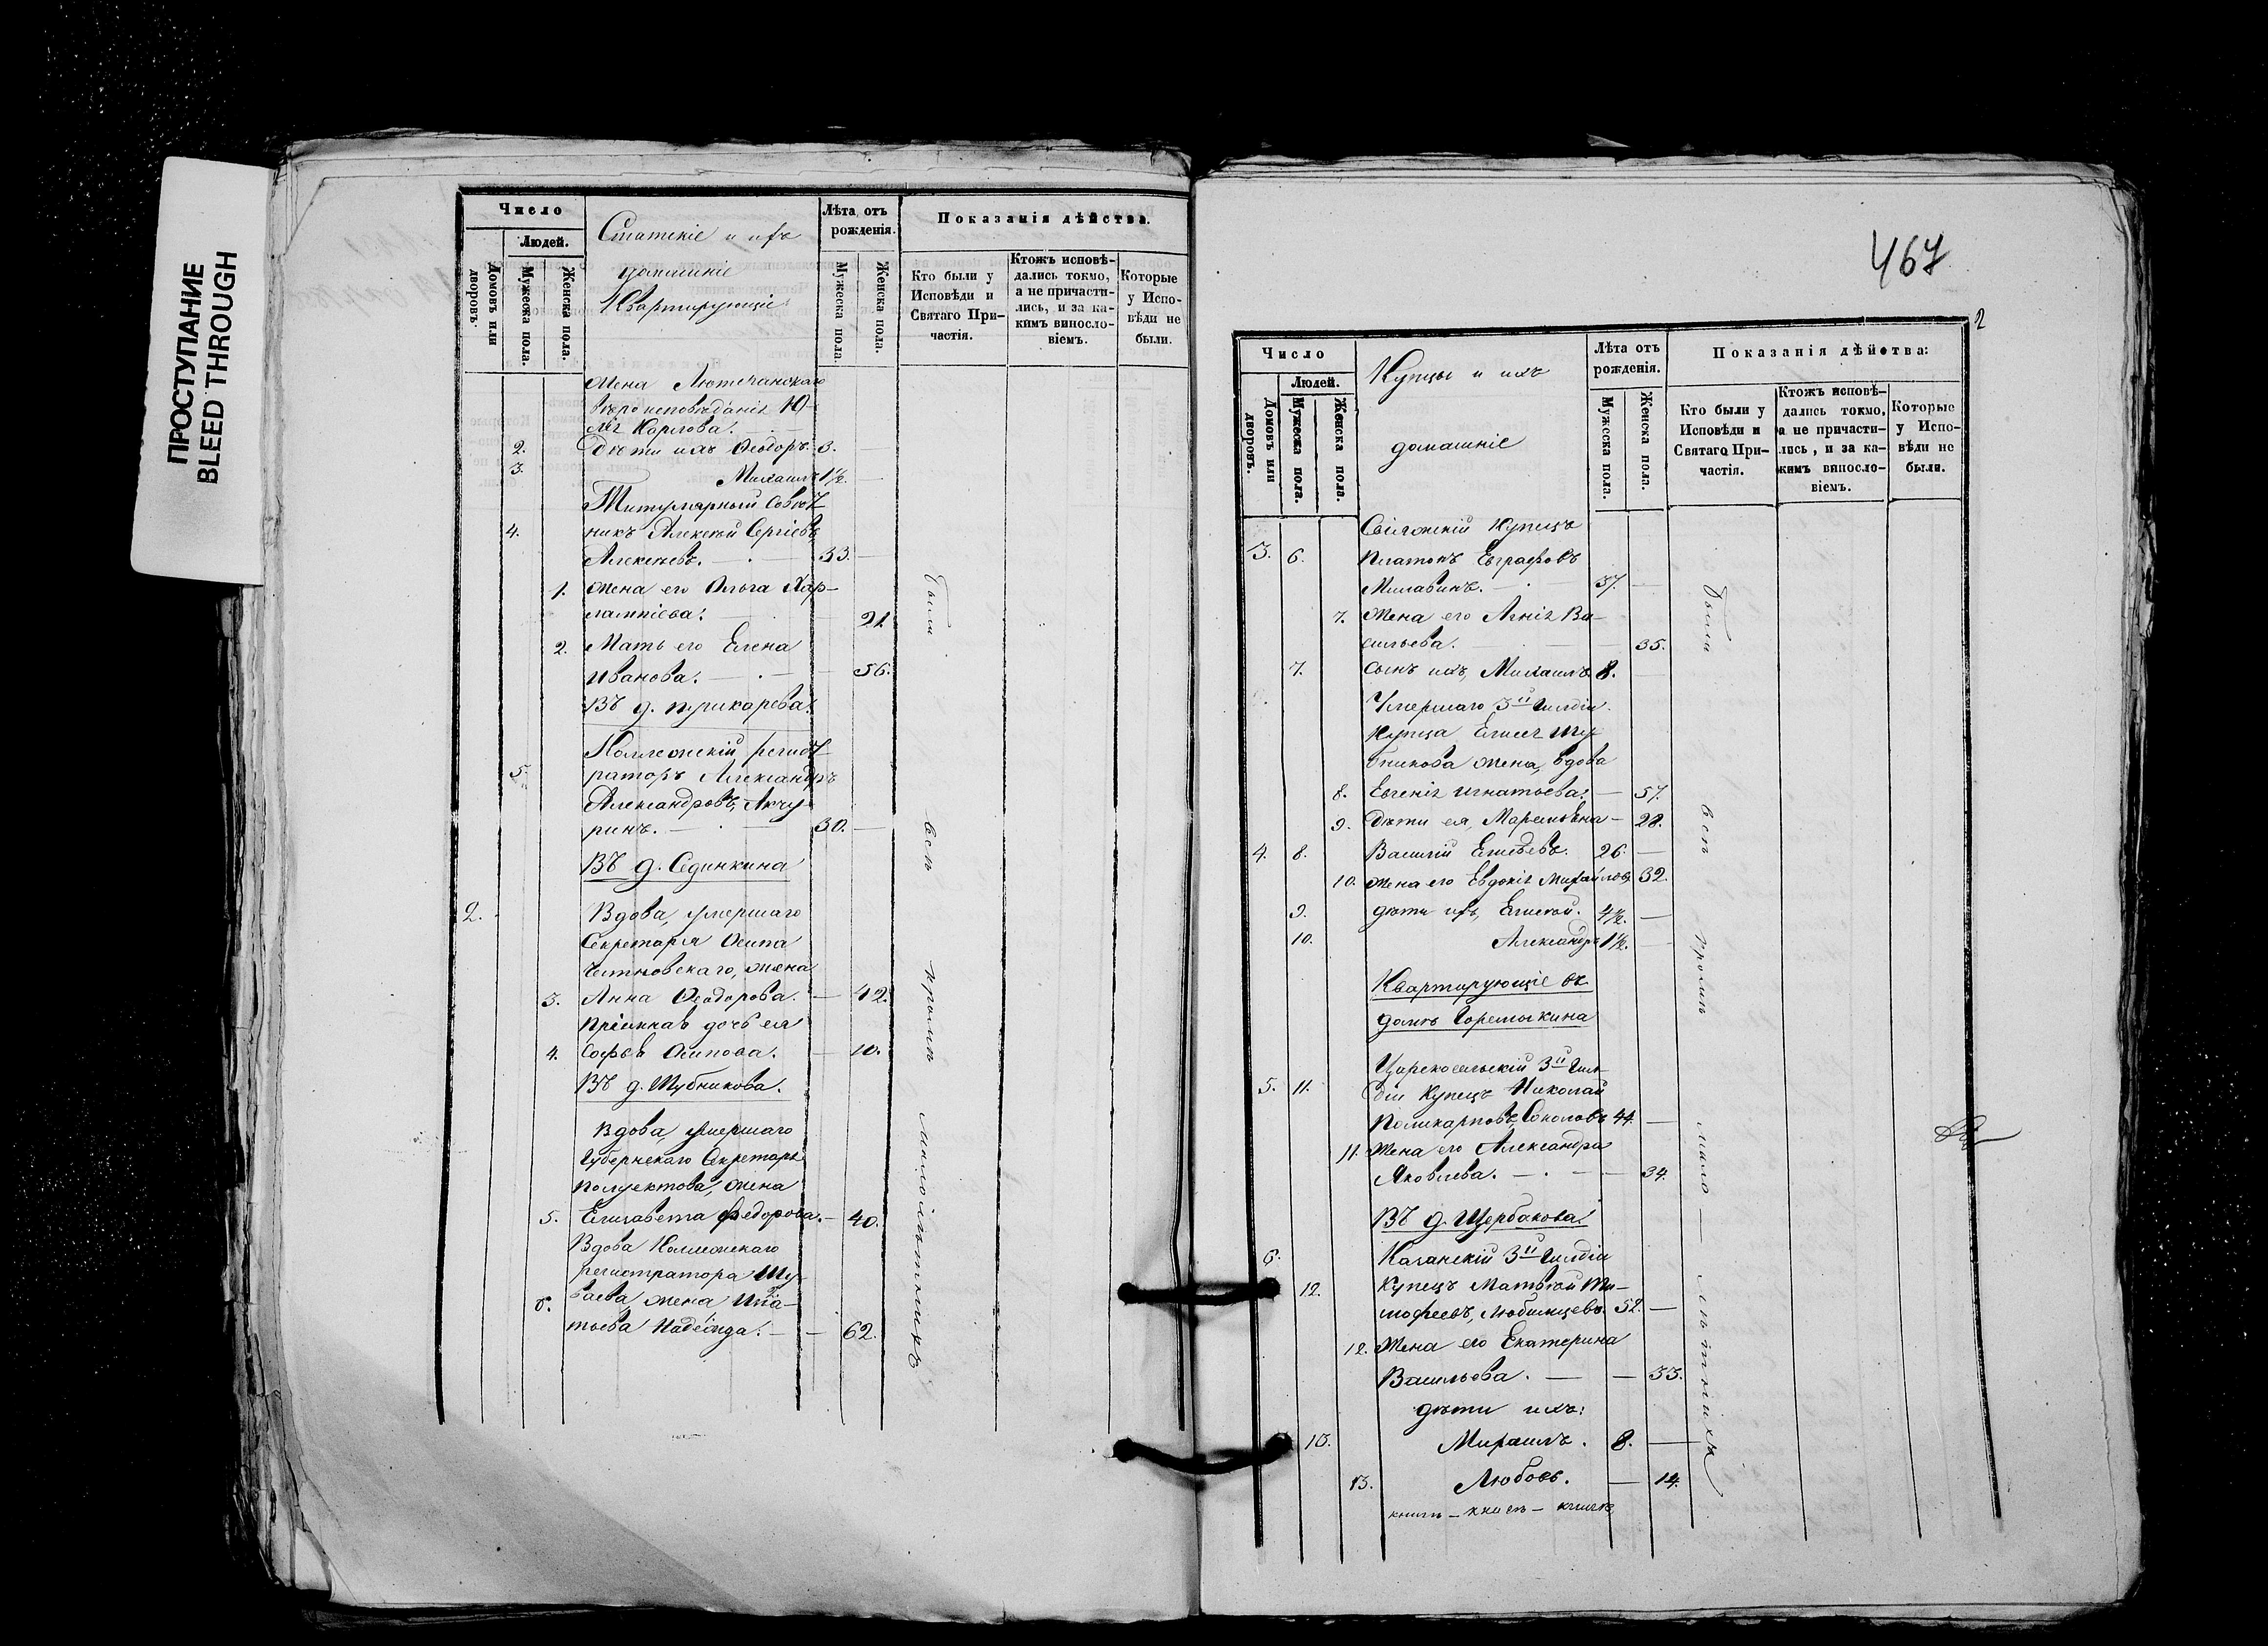 ПРОСТУПАНИЕ
BLEED THROUGH
Число
Людей.
Домовъ или дворовъ.
Мужеска пола.
Женска пола.
Статскіе и ихъ
домашніе
Квартирующіе
Лѣта отъ рожденія.
Мужеска пола.
Женска пола.
Показанія дѣйства.
Кто были у Исповѣди и Святаго Причастія.
Ктожъ исповѣдались токмо, а не причастились, и за какимъ винословіемъ.
Которые у Исповѣди не были.
Жена Лютеранскаго
вѣроисповѣданія Ю-
лія Карлова.
2. Дѣти ихъ Ѳеодоръ. 3.
3. Михаилъ 1½.
Титулярный Совѣт-
4. никъ Алексѣй Сергіевъ
Алексѣевъ. 33.
1. Жена его Ольга Хар-
лампіева. 21.
2. Мать его Елена
Иванова. 56.
Въ д. Пушкарева.
Коллежскій регист-
5. раторъ Александръ
Александровъ, Акчу-
ринъ. 30.
Въ д. Сединкина
2. Вдова, умершаго
Секретаря Осипа
жена
3. Анна Ѳеодорова. 42.
Пріемная дочь ея
4. Софья Осипова. 10.
Въ д. Шубникова.
Вдова, умершаго
Губернскаго Секретаря
Полуектова, жена
5. Елизавета Федорова. 40.
Вдова Коллежскаго
регистратора Шу-
6. баева, жена Игна-
тьева Надежда. 62.
были всѣ кромѣ малолѣтнихъ
467
2
Число
Людей.
Домовъ или дворовъ.
Мужеска пола.
Женска пола.
Купцы и ихъ
домашніе
Лѣта отъ рожденія.
Мужеска пола.
Женска пола.
Показанія дѣйства:
Кто были у Исповѣди и Святаго Причастія.
Ктожъ исповѣдались токмо, а не причастились, и за какимъ винословіемъ.
Которые у Исповѣди не были.
Свіяжскій Купецъ
3. 6. Платонъ Евграфовъ
Милавинъ. 37.
7. Жена его Агнія Ва-
сильева. 35.
7. Сынъ ихъ, Михаилъ 8.
Умершаго 3й Гильдіи
Купца Елисея Шу-
бникова жена, вдова
8. Евгенія Игнатьева. 57.
9. Дѣти ея, 28.
4. 8. Василій Елисѣевъ. 26.
10. Жена его Евдокія Михайлова, 32.
9. дѣти ихъ, Елисей. 4½.
10. Александръ 1½.
Квартирующіе въ
домѣ Горемыкина
Царскосельскій 3й Гиль-
5. 11. діи Купецъ Николай
Поликарповъ, Соколовъ 44.
11. Жена его Александра
Яковлева. 34.
Въ д. Щербакова
6. Казанскій 3й Гильдіи
12. Купецъ Матвѣй Ти-
мофеевъ, Любимцевъ. 52.
12. Жена его Екатерина
Васильева. 33.
дѣти ихъ:
13. Михаилъ. 8.
13. Любовь. 14.
были всѣ кромѣ мало-лѣтнихъ